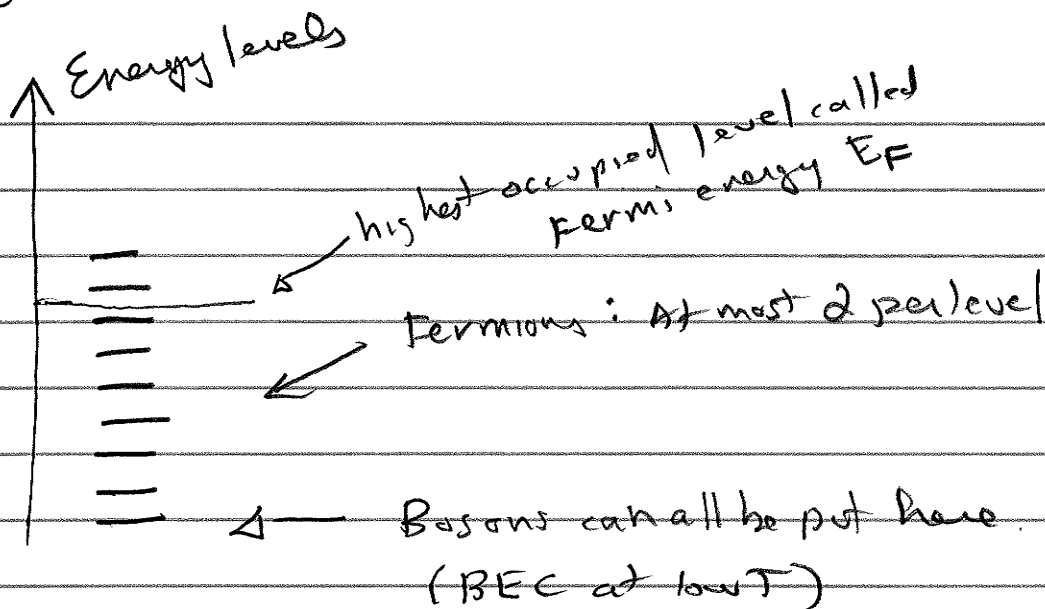 Energy levels
highest occupied level called
Fermi energy EF
Fermions : At most 2 per level
Bosons can all be put here.
(BEC at low T)